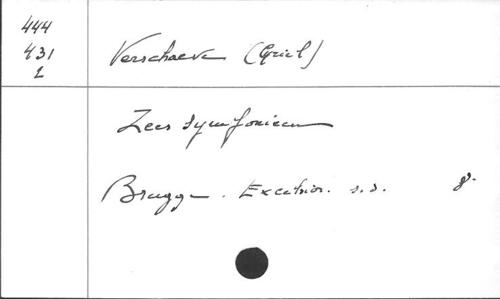 444
431
2
Verschaeve (Cyriel)
Zeesymfonieen
Brugge. Excelsior. s.d. 8°